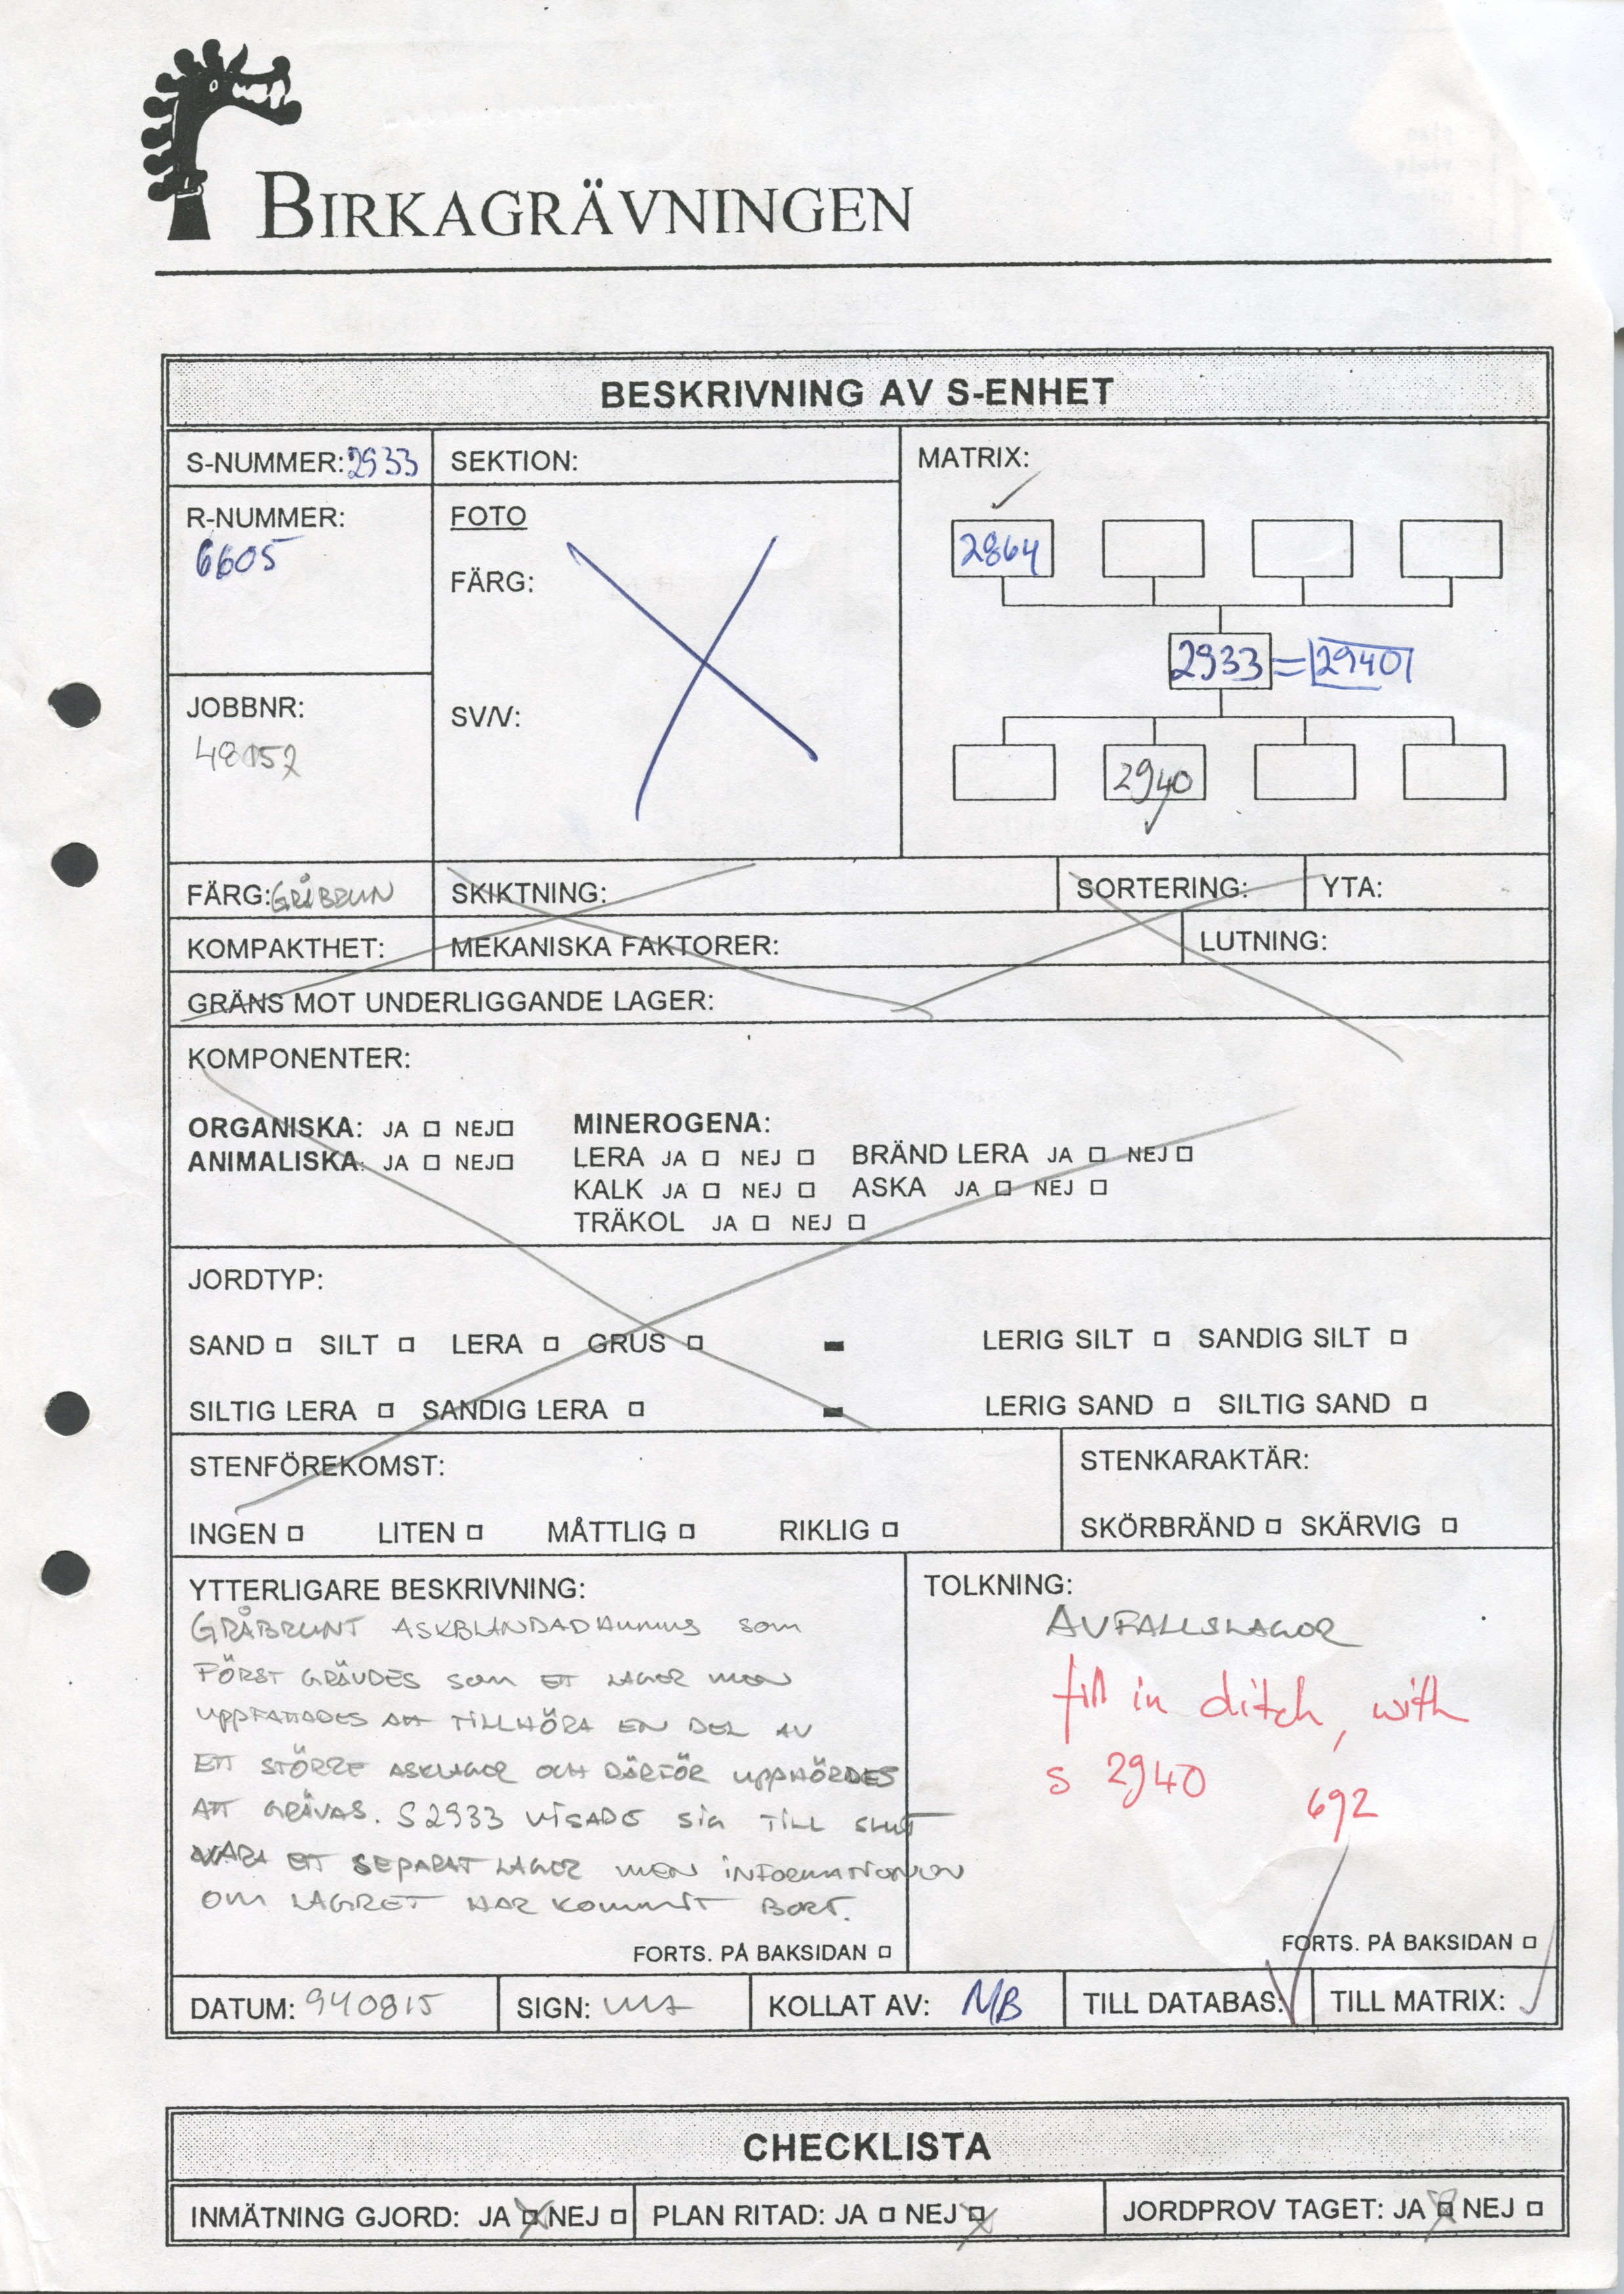 BIRKAGRÄVNINGEN
BESKRIVNING AV S-ENHET
S-NUMMER: 2933
SEKTION:
MATRIX:
R-NUMMER:
6605
FOTO
FÄRG:
SV/V:
2864
2933 = 2940
2940
JOBBNR:
48152
FÄRG: GRÅBRUN
SKIKTNING:
SORTERING:
YTA:
KOMPAKTHET:
MEKANISKA FAKTORER:
LUTNING:
GRÄNS MOT UNDERLIGGANDE LAGER:
KOMPONENTER:
ORGANISKA: JA NEJ
ANIMALISKA: JA NEJ
MINEROGENA:
LERA JA NEJ BRÄND LERA JA NEJ
KALK JA NEJ ASKA JA NEJ
TRÄKOL JA NEJ
JORDTYP:
SAND SILT LERA GRUS LERIG SILT SANDIG SILT
SILTIG LERA SANDIG LERA LERIG SAND SILTIG SAND
STENFÖREKOMST:
INGEN LITEN MÅTTLIG RIKLIG
STENKARAKTÄR:
SKÖRBRÄND SKÄRVIG
YTTERLIGARE BESKRIVNING:
GRÅBRUNT ASKBLANDAD HUMUS SOM
FÖRST GRÄVDES SOM ETT LAGER MEN
UPPFATTADES ATT TILLHÖRA EN DEL AV
ETT STÖRRE ASKLAGER OCH DÄRFÖR UPPHÖRDES
ATT GRÄVAS. S2933 VISADE SIG TILL SLUT
VARA ETT SEPARAT LAGER MEN INFORMATIONEN
OM LAGRET HAR KOMMIT BORT.
FORTS. PÅ BAKSIDAN
TOLKNING:
AVFALLSLAGER
fill in ditch, with
s 2940
692
FORTS. PÅ BAKSIDAN
DATUM: 940815
SIGN:
KOLLAT AV: MB
TILL DATABAS:
TILL MATRIX:
CHECKLISTA
INMÄTNING GJORD: JA NEJ
PLAN RITAD: JA NEJ
JORDPROV TAGET: JA NEJ